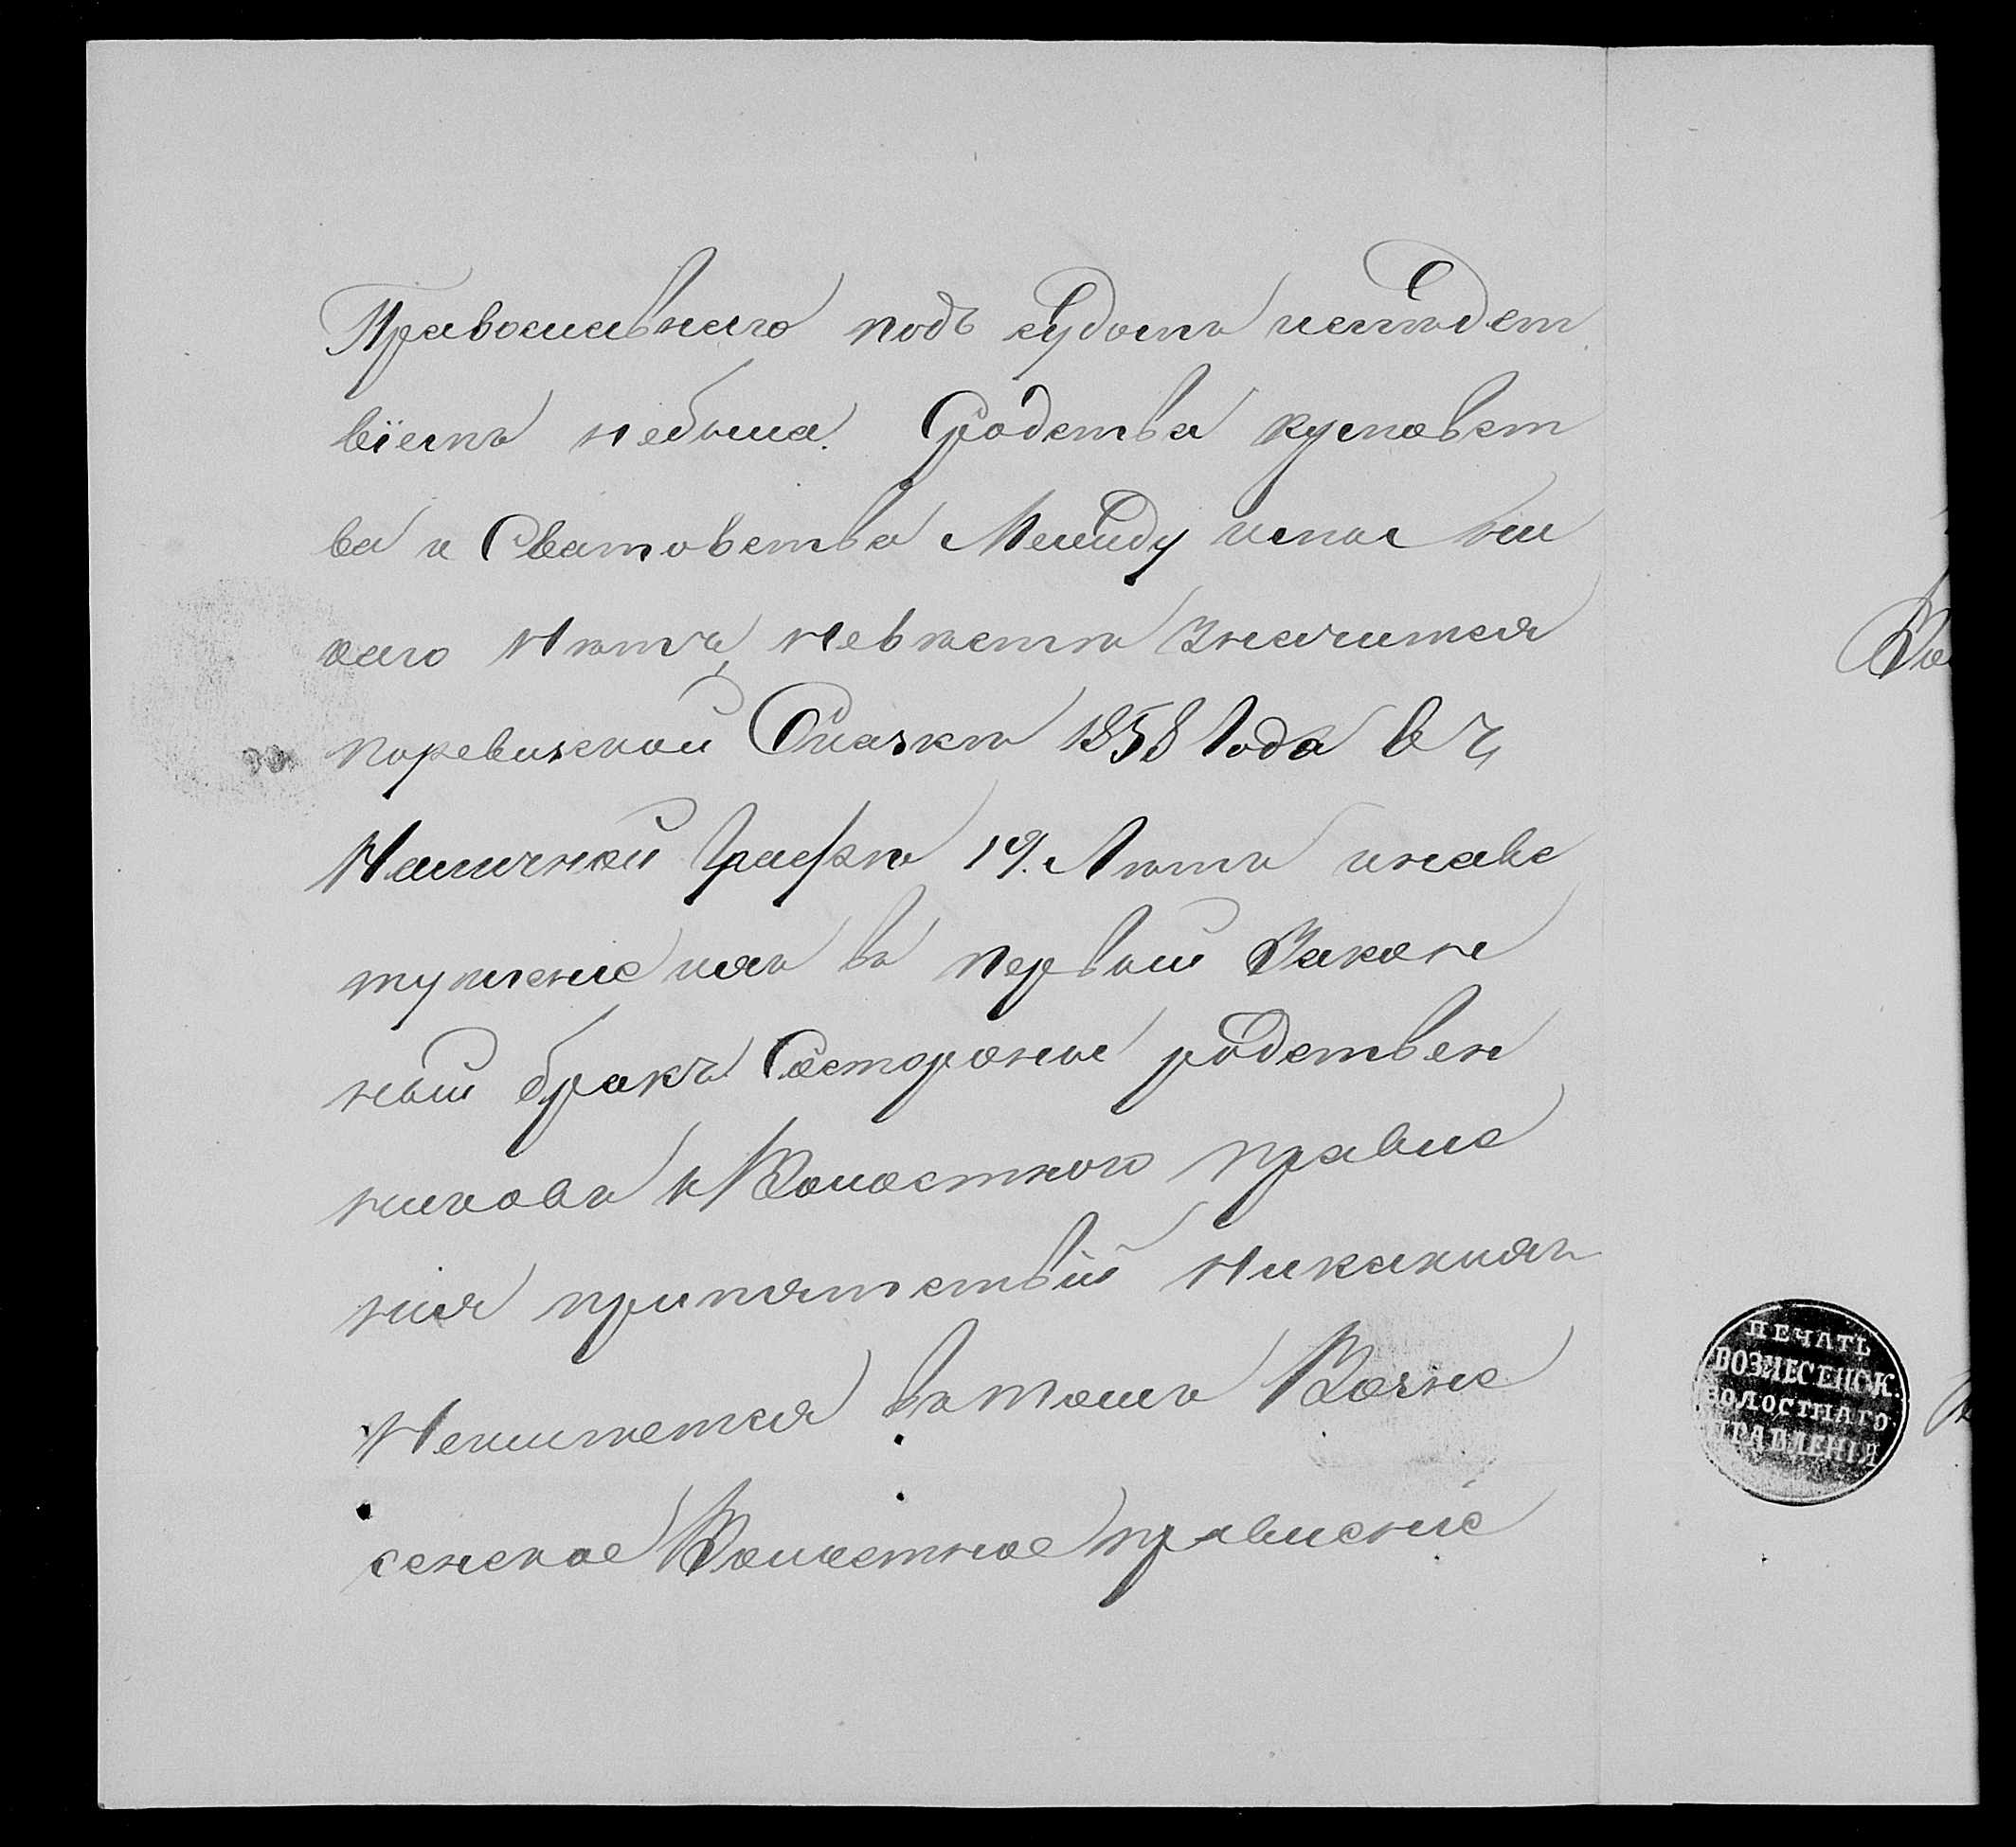 Православнаго подъ судомъ ислѣдст
віемъ небыла. Родства кумовст
ва и Сватовства Между ими ни
каго Нѣтъ, Невѣста Значится
поревизкой Скаскѣ 1858 Года в ч,
Наличной Графѣ 19. Лѣтъ инавс
тупленіе ихъ въ первый Закон
ный бракъ Состороны родствен
никовъ и Волостного правле
нія припятствій Никакихъ
Неимѣется въ томъ Возне
сенское Волостное правленіе
Во
ПЕЧАТЬ
ВОЗНЕСЕНСК.
ВОЛОСТНАГО
ПРАВЛЕНІЯ